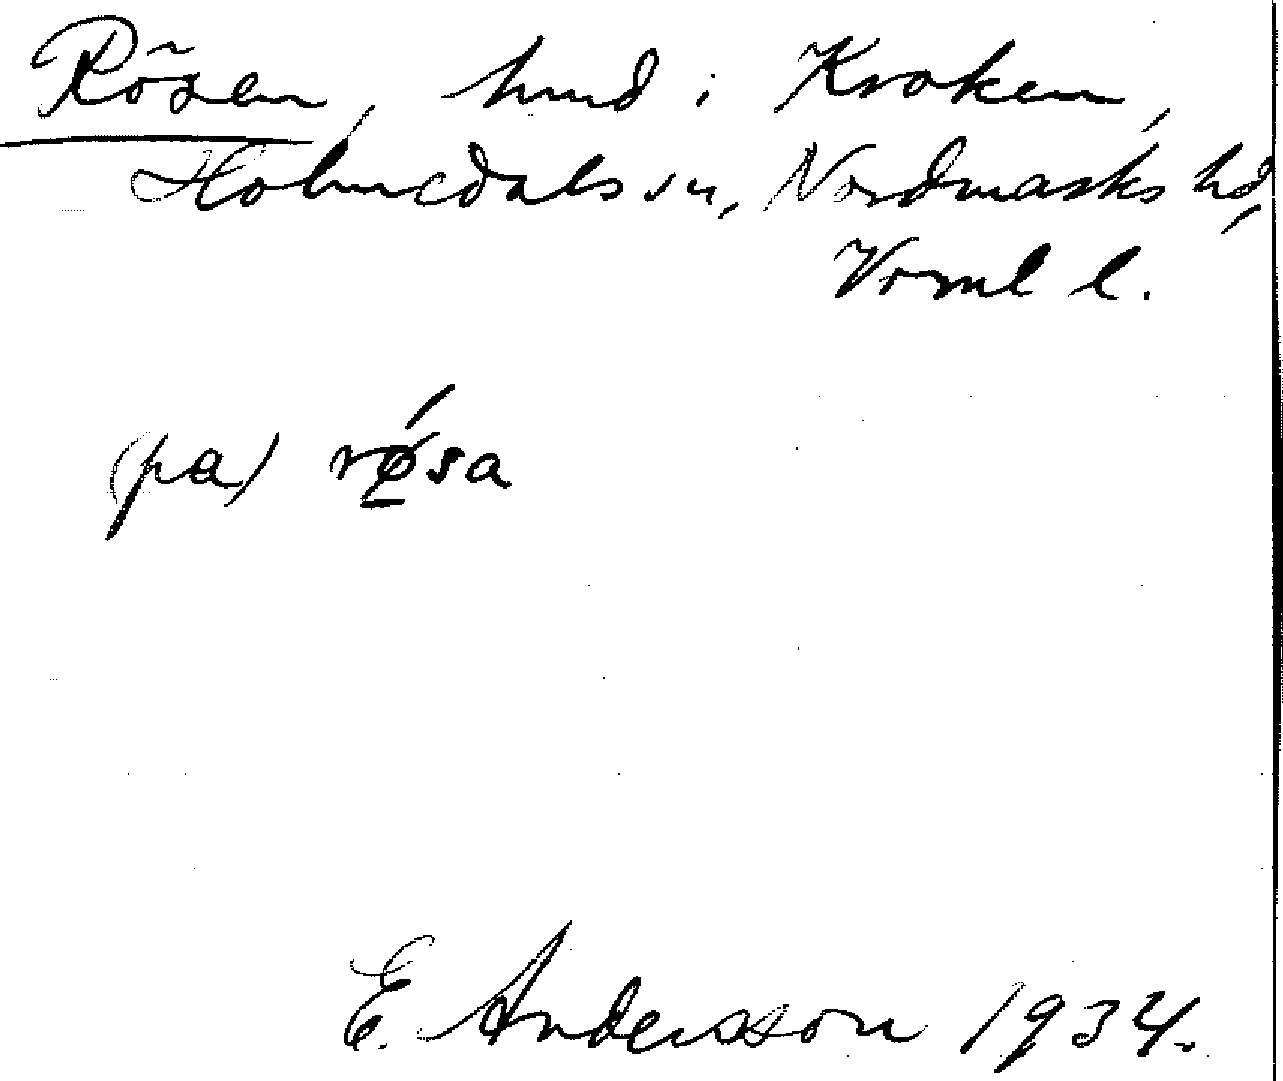 Rösen, hmd i Kroken,
Holmedals sn, Nordmarks hd,
Vrml l.
(pa) rǿ̱sa
E. Andersson 1934.